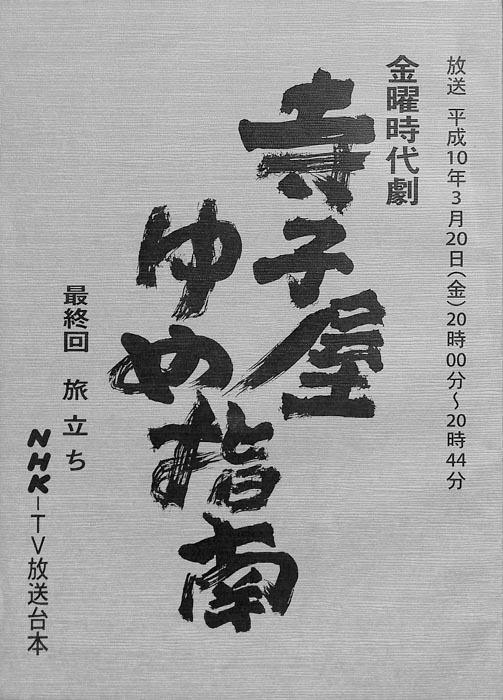 放送 平成10年3月20日(金)20時00分〜20時44分
金曜時代劇
寺子屋
ゆめ指南
最終回 旅立ち
NHK-TV放送台本